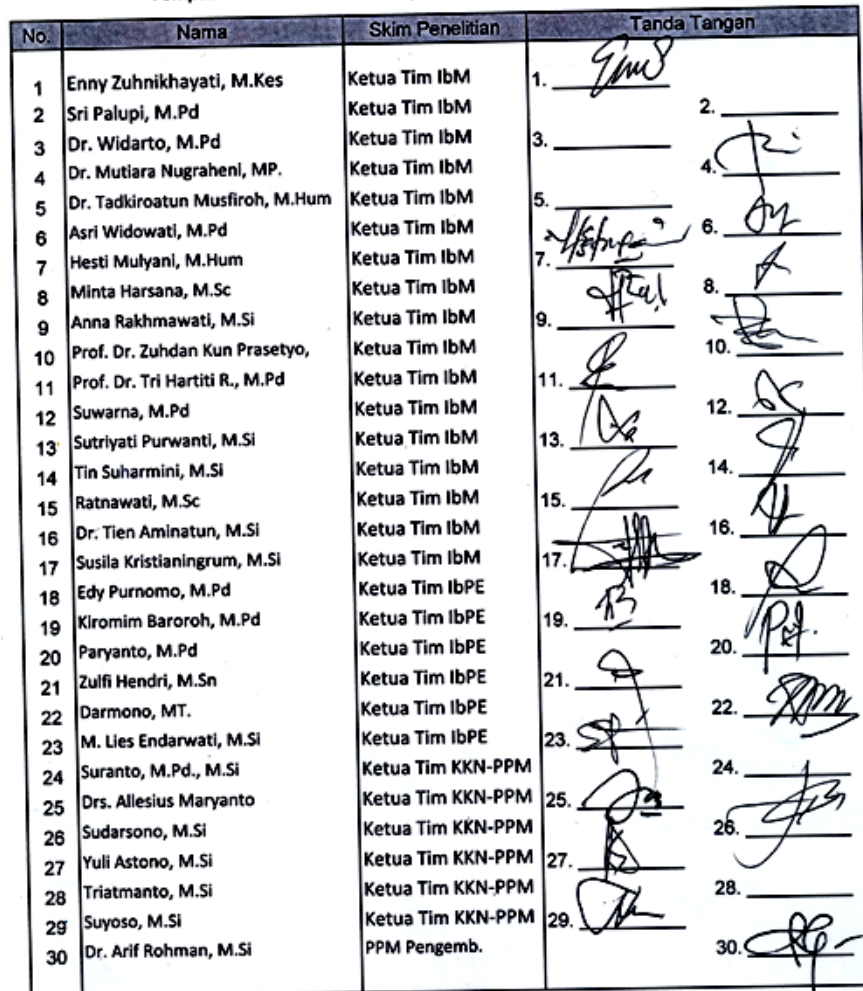 No. Nama Skim Penelitian Tanda Tangan
1 Enny Zuhnikhayati, M.Kes Ketua Tim IbM 1.
2 Sri Palupi, M.Pd Ketua Tim IbM 2.
3 Dr. Widarto, M.Pd Ketua Tim IbM 3.
4 Dr. Mutiara Nugraheni, MP. Ketua Tim IbM 4.
5 Dr. Tadkiroatun Musfiroh, M.Hum Ketua Tim IbM 5.
6 Asri Widowati, M.Pd Ketua Tim IbM 6.
7 Hesti Mulyani, M.Hum Ketua Tim IbM 7.
8 Minta Harsana, M.Sc Ketua Tim IbM 8.
9 Anna Rakhmawati, M.Si Ketua Tim IbM 9.
10 Prof. Dr. Zuhdan Kun Prasetyo, Ketua Tim IbM 10.
11 Prof. Dr. Tri Hartiti R., M.Pd Ketua Tim IbM 11.
12 Suwarna, M.Pd Ketua Tim IbM 12.
13 Sutriyati Purwanti, M.Si Ketua Tim IbM 13.
14 Tin Suharmini, M.Si Ketua Tim IbM 14.
15 Ratnawati, M.Sc Ketua Tim IbM 15.
16 Dr. Tien Aminatun, M.Si Ketua Tim IbM 16.
17 Susila Kristianingrum, M.Si Ketua Tim IbM 17.
18 Edy Purnomo, M.Pd Ketua Tim IbPE 18.
19 Kiromim Baroroh, M.Pd Ketua Tim IbPE 19.
20 Paryanto, M.Pd Ketua Tim IbPE 20.
21 Zulfi Hendri, M.Sn Ketua Tim IbPE 21.
22 Darmono, MT. Ketua Tim IbPE 22.
23 M. Lies Endarwati, M.Si Ketua Tim IbPE 23.
24 Suranto, M.Pd., M.Si Ketua Tim KKN-PPM 24.
25 Drs. Allesius Maryanto Ketua Tim KKN-PPM 25.
26 Sudarsono, M.Si Ketua Tim KKN-PPM 26.
27 Yuli Astono, M.Si Ketua Tim KKN-PPM 27.
28 Triatmanto, M.Si Ketua Tim KKN-PPM 28.
29 Suyoso, M.Si Ketua Tim KKN-PPM 29.
30 Dr. Arif Rohman, M.Si PPM Pengemb. 30.